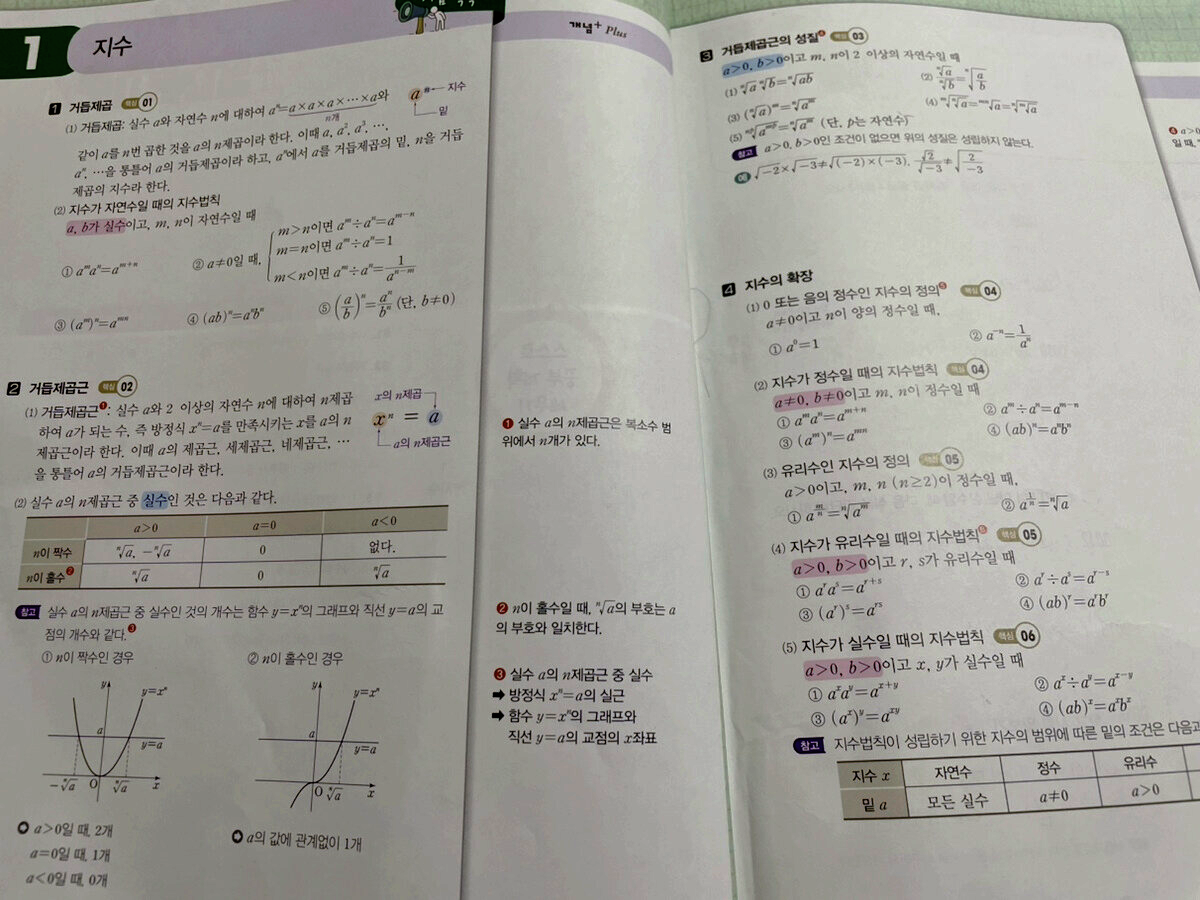 1 지수
개념+ Plus
1 거듭제곱 핵심 01
(1) 거듭제곱: 실수 a와 자연수 n에 대하여 aⁿ=a×a×a×⋯×a와
n개
같이 a를 n번 곱한 것을 a의 n제곱이라 한다. 이때 a, a², a³, ⋯,
aⁿ, ⋯을 통틀어 a의 거듭제곱이라 하고, aⁿ에서 a를 거듭제곱의 밑, n을 거듭
제곱의 지수라 한다.
aⁿ 지수
밑
(2) 지수가 자연수일 때의 지수법칙
a, b가 실수이고, m, n이 자연수일 때
① aᵐaⁿ=aᵐ⁺ⁿ
② a≠0일 때,
m>n이면 aᵐ÷aⁿ=aᵐ⁻ⁿ
m=n이면 aᵐ÷aⁿ=1
m<n이면 aᵐ÷aⁿ=1/aⁿ⁻ᵐ
③ (aᵐ)ⁿ=aᵐⁿ ④ (ab)ⁿ=aⁿbⁿ ⑤ (a/b)ⁿ=aⁿ/bⁿ (단, b≠0)
2 거듭제곱근 핵심 02
(1) 거듭제곱근❶: 실수 a와 2 이상의 자연수 n에 대하여 n제곱
하여 a가 되는 수, 즉 방정식 xⁿ=a를 만족시키는 x를 a의 n
제곱근이라 한다. 이때 a의 제곱근, 세제곱근, 네제곱근, ⋯
을 통틀어 a의 거듭제곱근이라 한다.
x의 n제곱
xⁿ = a
a의 n제곱근
(2) 실수 a의 n제곱근 중 실수인 것은 다음과 같다.
a>0 a=0 a<0
n이 짝수 ⁿ√a, -ⁿ√a 0 없다.
n이 홀수❷ ⁿ√a 0 ⁿ√a
참고 실수 a의 n제곱근 중 실수인 것의 개수는 함수 y=xⁿ의 그래프와 직선 y=a의 교
점의 개수와 같다.❸
① n이 짝수인 경우 ② n이 홀수인 경우
y y=xⁿ
a y=a
-ⁿ√a O ⁿ√a x
y y=xⁿ
a y=a
O ⁿ√a x
a>0일 때, 2개
a=0일 때, 1개
a<0일 때, 0개
a의 값에 관계없이 1개
❶ 실수 a의 n제곱근은 복소수 범
위에서 n개가 있다.
❷ n이 홀수일 때, ⁿ√a의 부호는 a
의 부호와 일치한다.
❸ 실수 a의 n제곱근 중 실수
➡ 방정식 xⁿ=a의 실근
➡ 함수 y=xⁿ의 그래프와
직선 y=a의 교점의 x좌표
3 거듭제곱근의 성질❹ 핵심 03
a>0, b>0이고 m, n이 2 이상의 자연수일 때
(1) ⁿ√a ⁿ√b=ⁿ√ab (2) ⁿ√a/ⁿ√b=ⁿ√(a/b)
(3) (ⁿ√a)ᵐ=ⁿ√aᵐ (4) ᵐ√ⁿ√a=ᵐⁿ√a=ⁿ√ᵐ√a
(5) ⁿᵖ√aᵐᵖ=ⁿ√aᵐ (단, p는 자연수)
참고 a>0, b>0인 조건이 없으면 위의 성질은 성립하지 않는다.
예 √-2×√-3≠√(-2)×(-3), √2/√-3≠√(2/-3)
4 지수의 확장
(1) 0 또는 음의 정수인 지수의 정의❺ 핵심 04
a≠0이고 n이 양의 정수일 때,
① a⁰=1 ② a⁻ⁿ=1/aⁿ
(2) 지수가 정수일 때의 지수법칙 핵심 04
a≠0, b≠0이고 m, n이 정수일 때
① aᵐaⁿ=aᵐ⁺ⁿ ② aᵐ÷aⁿ=aᵐ⁻ⁿ
③ (aᵐ)ⁿ=aᵐⁿ ④ (ab)ⁿ=aⁿbⁿ
(3) 유리수인 지수의 정의 핵심 05
a>0이고, m, n (n≥2)이 정수일 때,
① a^(m/n)=ⁿ√aᵐ ② a^(1/n)=ⁿ√a
(4) 지수가 유리수일 때의 지수법칙❻ 핵심 05
a>0, b>0이고 r, s가 유리수일 때
① aʳaˢ=aʳ⁺ˢ ② aʳ÷aˢ=aʳ⁻ˢ
③ (aʳ)ˢ=aʳˢ ④ (ab)ʳ=aʳbʳ
(5) 지수가 실수일 때의 지수법칙 핵심 06
a>0, b>0이고 x, y가 실수일 때
① aˣaʸ=aˣ⁺ʸ ② aˣ÷aʸ=aˣ⁻ʸ
③ (aˣ)ʸ=aˣʸ ④ (ab)ˣ=aˣbˣ
참고 지수법칙이 성립하기 위한 지수의 범위에 따른 밑의 조건은 다음과
지수 x 자연수 정수 유리수
밑 a 모든 실수 a≠0 a>0
❹ a>0
일 때,